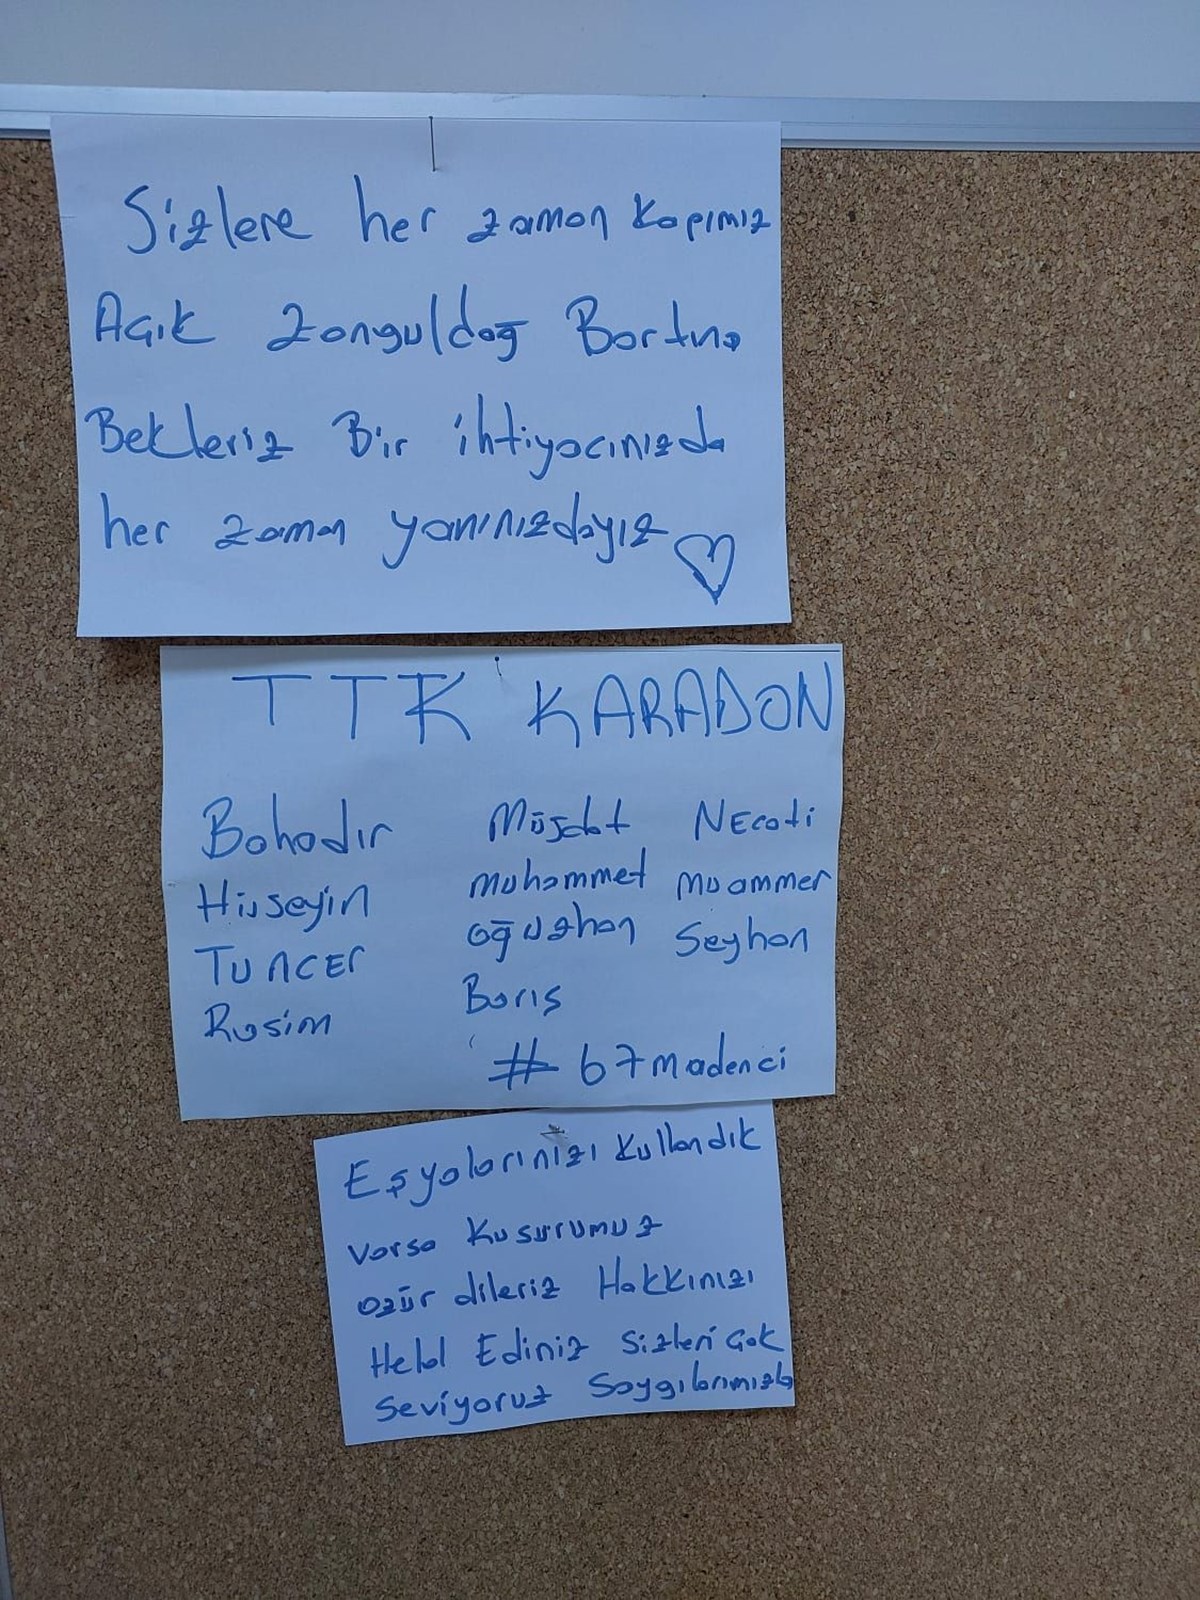 Sizlere her zaman Kapımız
Açık Zonguldağ Bartına
Bekleriz Bir ihtiyacınızda
her zaman yanınızdayız
TTK KARADON
Bahadır Müşdat Necati
Hüseyin Muhammet Muammer
Tuncer Oğuzhan Seyhan
Rasim Barış
#67madenci
Eşyalarınızı Kullandık
varsa Kusurumuz
özür dileriz Hakkınızı
Helal Ediniz Sizleri Çok
Seviyoruz Saygılarımızla